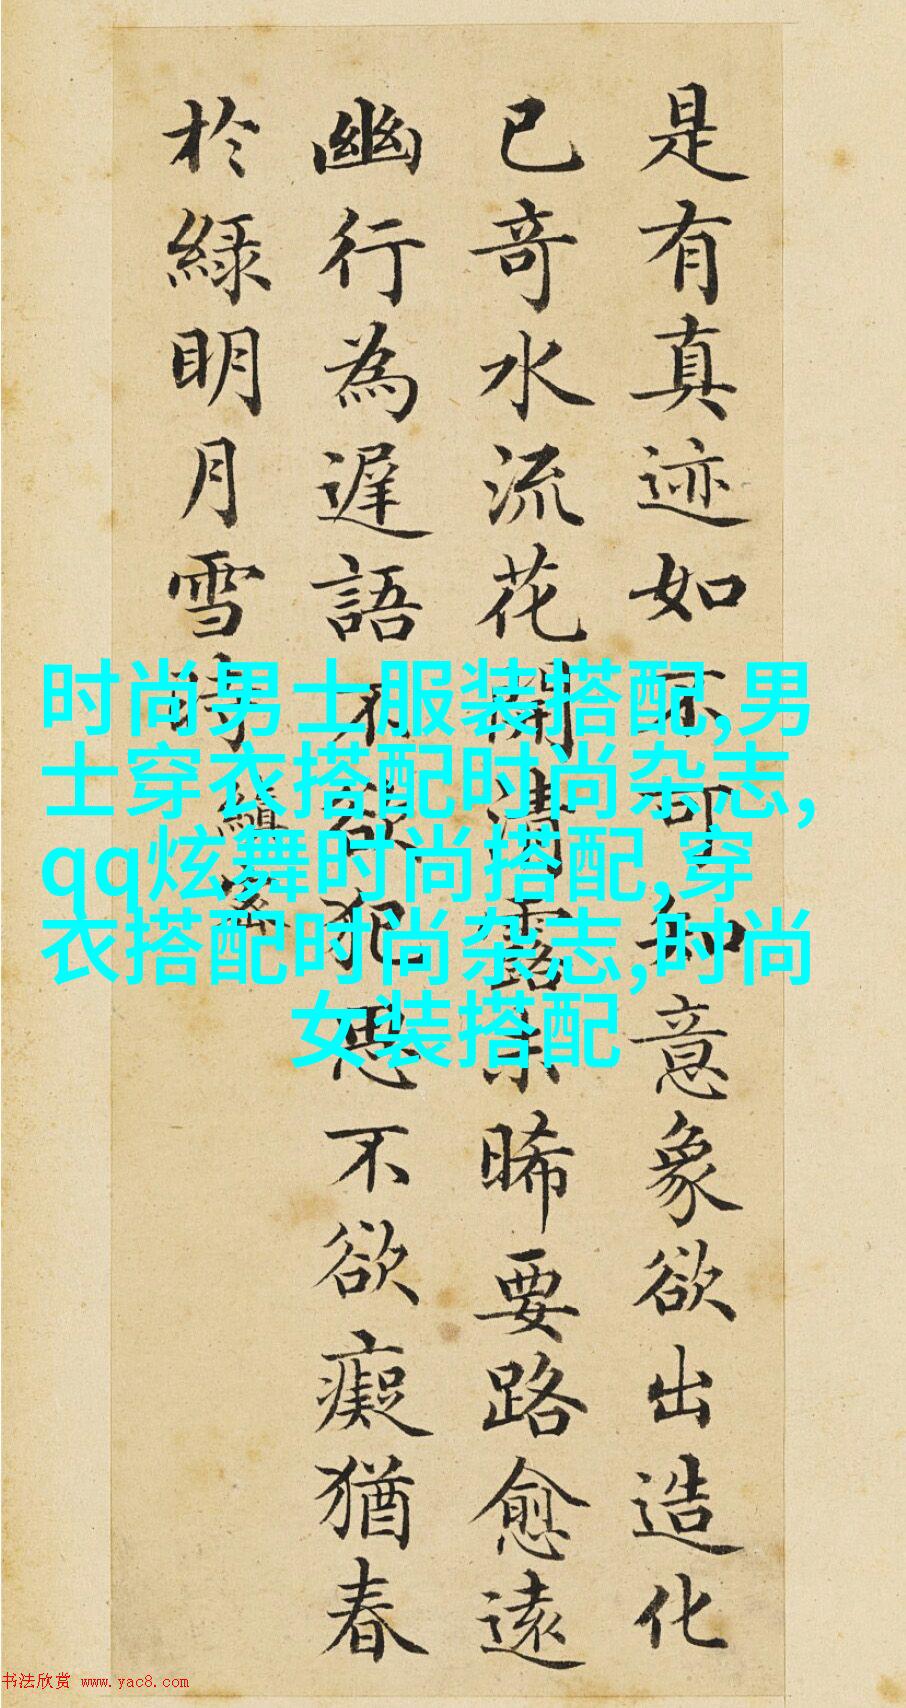 是有真迹如不可知意象欲出造化
已奇水流花開清露未晞要路愈遠
幽行為遲語不欲犯思不欲癡猶春
於綠明月雪時 縝密
时尚男士服装搭配,男
士穿衣搭配时尚杂志,
qq炫舞时尚搭配,穿
衣搭配时尚杂志,时尚
女装搭配
书法欣赏 www.yac8.com